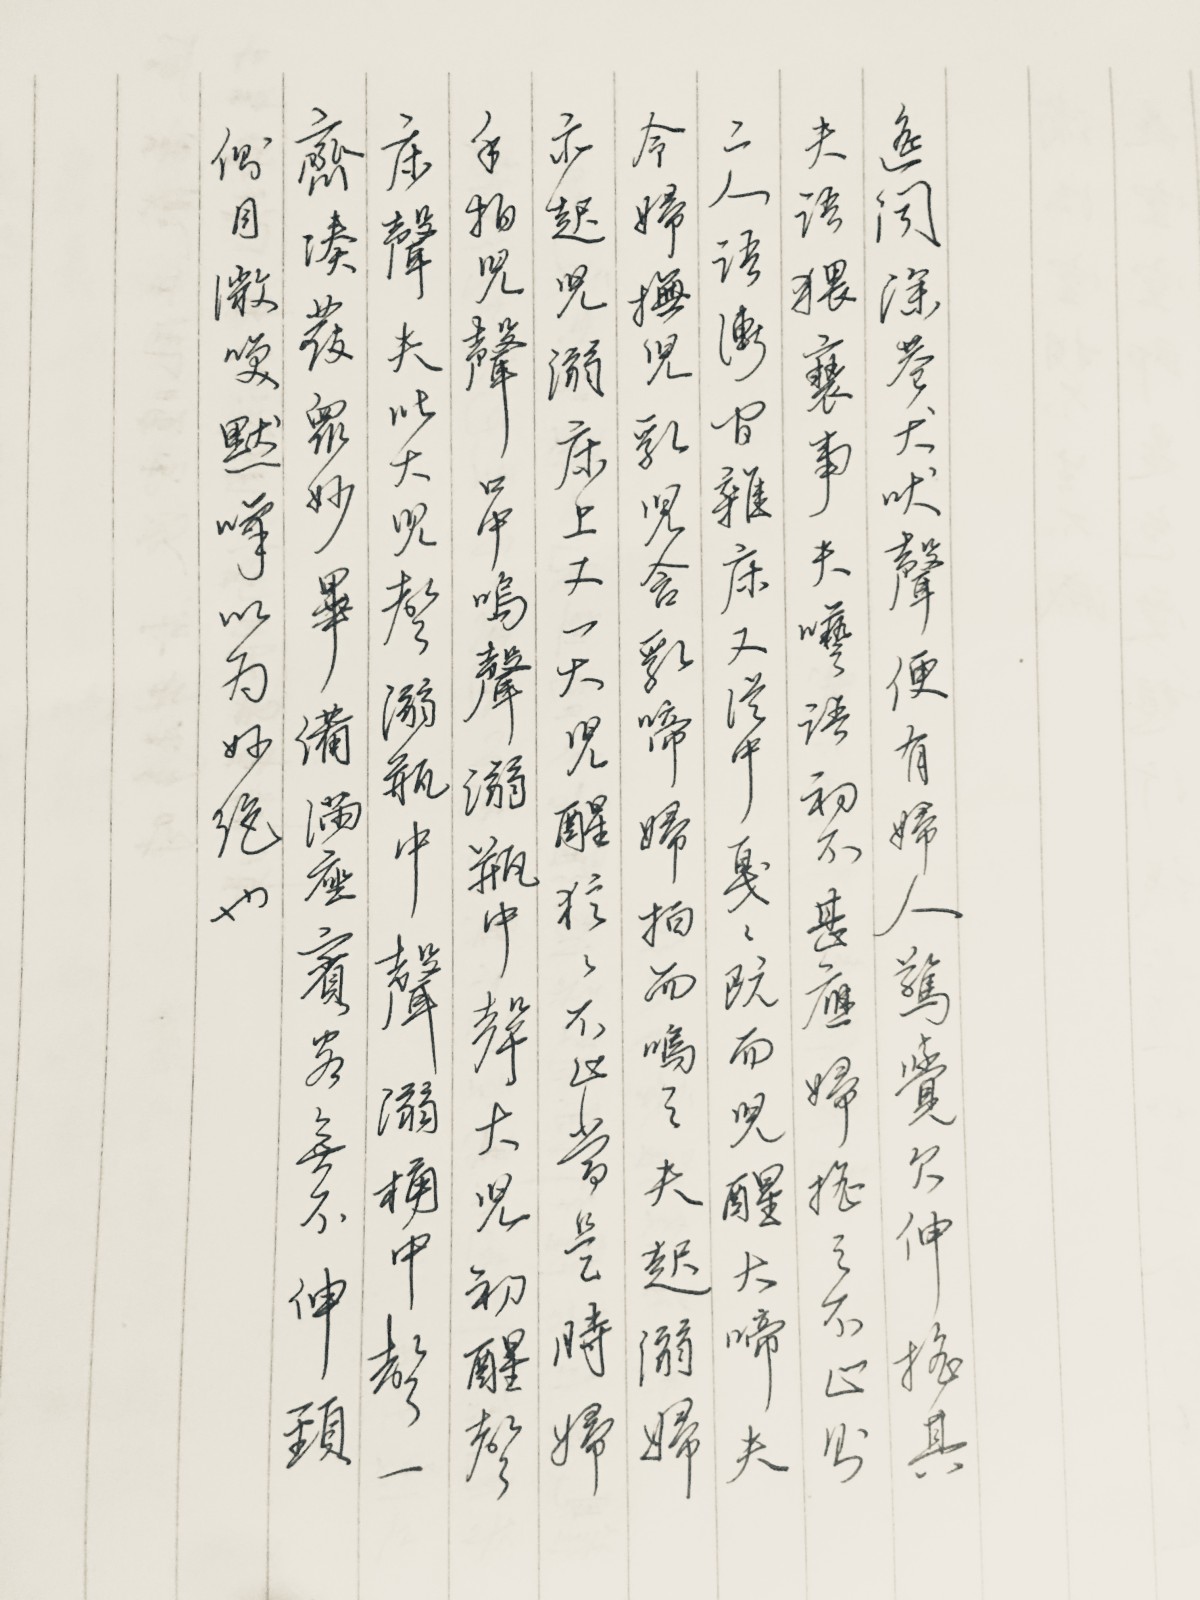 遙聞深巷犬吠聲便有婦人驚覺欠伸搖其
夫語猥褻事夫囈語初不甚應婦搖之不止則
二人語漸間雜床又從中戛々既而兒醒大啼夫
令婦撫兒乳兒含乳啼婦拍而嗚之夫起溺婦
亦起兒溺床上又一大兒醒狺々不止當是時婦
手拍兒聲口中嗚聲溺瓶中聲大兒初醒聲
床聲夫叱大兒聲溺瓶中聲溺桶中聲一
齊湊發眾妙畢備滿座賓客無不伸頸
側目微笑默嘆以为妙绝也